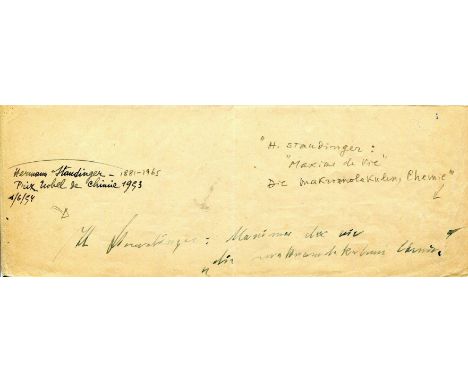 "H. Staudinger:
"Maxime de Vie"
Die makromolekulare Chemie"
Hermann Staudinger - 1881-1965
Prix Nobel de Chimie 1953
4/6/54
H Staudinger: Maximes de vie
die makromolekulare Chemie